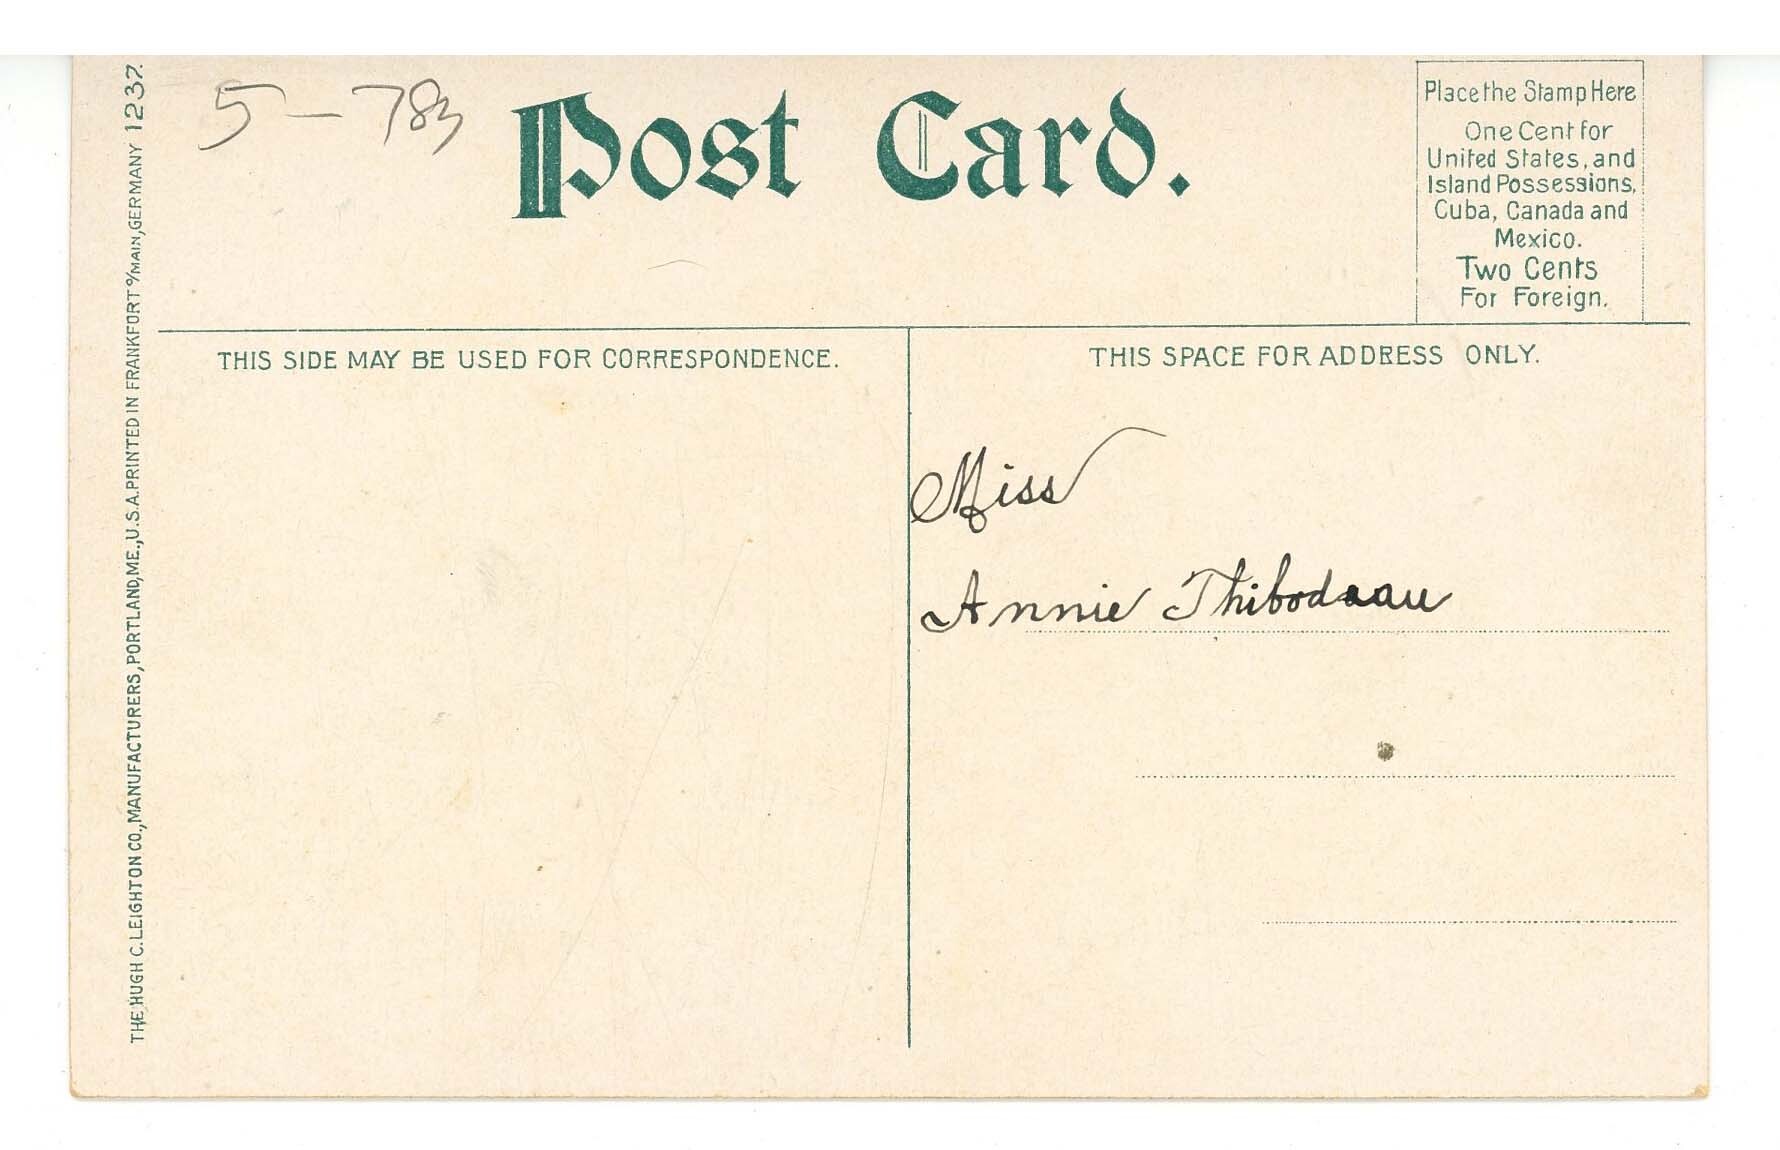 5-783
Post Card.
Place the Stamp Here
One Cent for
United States, and
Island Possessions,
Cuba, Canada and
Mexico.
Two Cents
For Foreign.
THIS SIDE MAY BE USED FOR CORRESPONDENCE.
THIS SPACE FOR ADDRESS ONLY.
Miss
Annie Thibodeau
THE HUGH C. LEIGHTON CO., MANUFACTURERS, PORTLAND, ME., U.S.A. PRINTED IN FRANKFORT o/MAIN, GERMANY 1237.